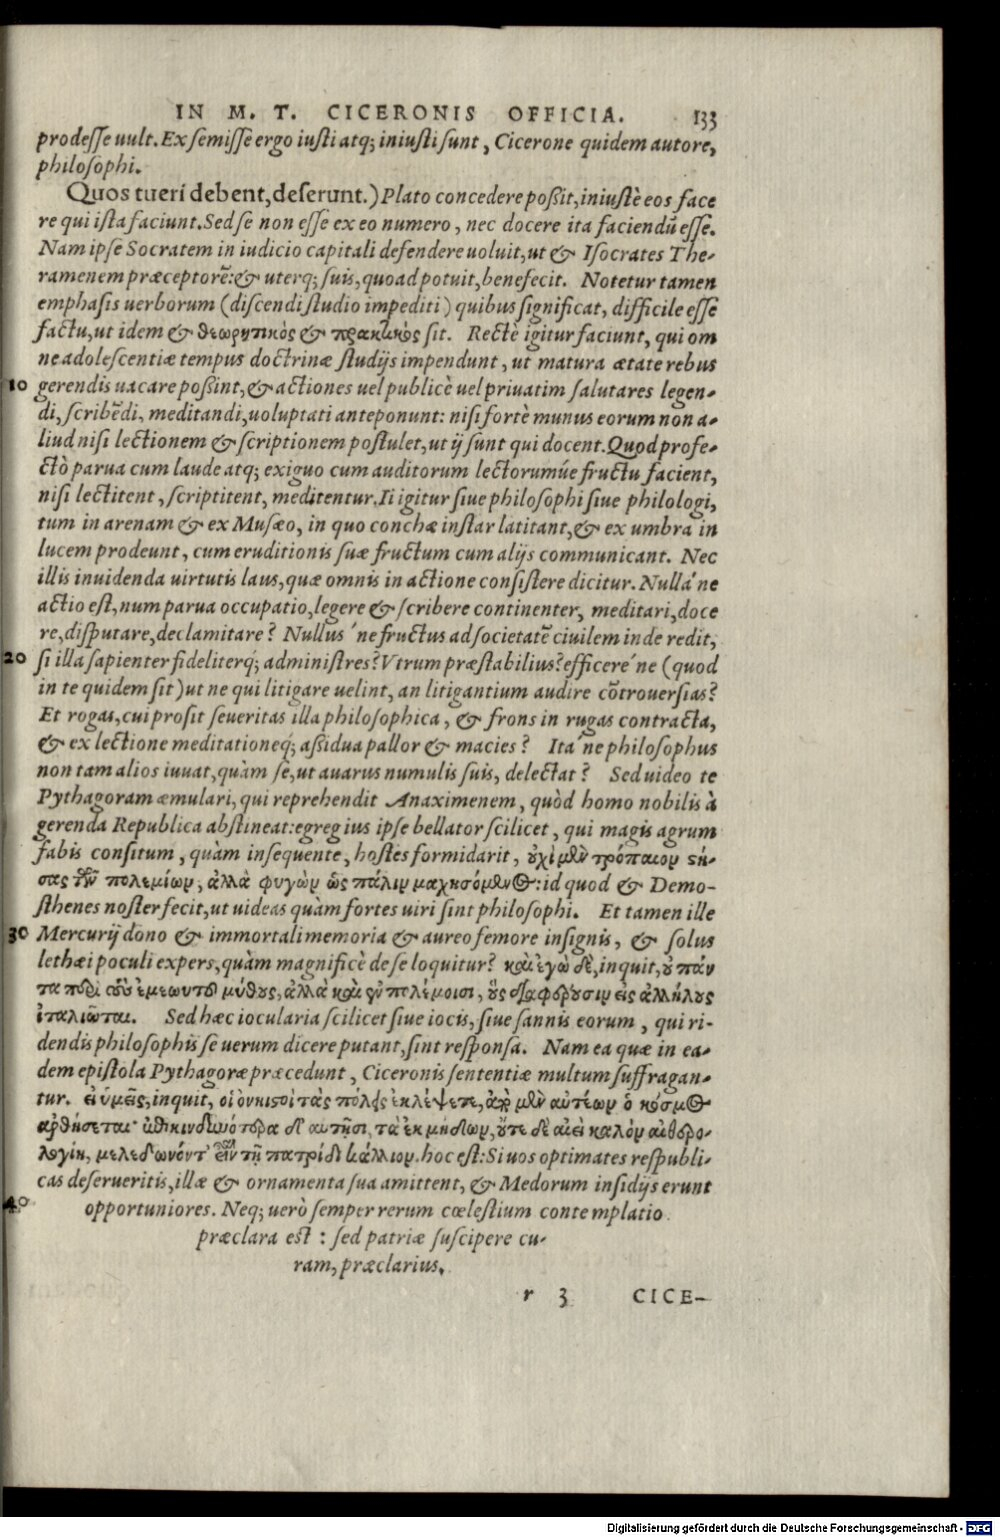 IN M. T. CICERONIS OFFICIA. 133
prodesse uult. Ex semisse ergo iusti atq; iniusti sunt, Cicerone quidem autore,
philosophi.
Quos tueri debent, deserunt.) Plato concedere poßit, iniustè eos face
re qui ista faciunt. Sed se non esse ex eo numero, nec docere ita faciendũ esse.
Nam ipse Socratem in iudicio capitali defendere uoluit, ut & Isocrates The-
ramenem præceptorẽ: & uterq; suis, quoad potuit, benefecit. Notetur tamen
emphasis uerborum (discendi studio impediti) quibus significat, difficile esse
factu, ut idem & θεωρητικὸς & πρακτικὸς sit. Rectè igitur faciunt, qui om
ne adolescentiæ tempus doctrinæ studijs impendunt, ut matura ætate rebus
10 gerendis uacare poßint, & actiones uel publicè uel priuatim salutares legen-
di, scribẽdi, meditandi, uoluptati anteponunt: nisi fortè munus eorum non a-
liud nisi lectionem & scriptionem postulet, ut ij sunt qui docent. Quod profe-
ctò parua cum laude atq; exiguo cum auditorum lectorumúe fructu facient,
nisi lectitent, scriptitent, meditentur. Ii igitur siue philosophi siue philologi,
tum in arenam & ex Musæo, in quo conchæ instar latitant, & ex umbra in
lucem prodeunt, cum eruditionis suæ fructum cum alijs communicant. Nec
illis inuidenda uirtutis laus, quæ omnis in actione consistere dicitur. Nulla´ne
actio est, num parua occupatio, legere & scribere continenter, meditari, doce
re, disputare, declamitare? Nullus´ne fructus ad societatẽ ciuilem inde redit,
20 si illa sapienter fideliterq́; administres? Vtrum præstabilius? efficere´ne (quod
in te quidem sit) ut ne qui litigare uelint, an litigantium audire cõtrouersias?
Et rogas, cui prosit seueritas illa philosophica, & frons in rugas contracta,
& ex lectione meditationeq́; aßidua pallor & macies? Ita´ne philosophus
non tam alios iuuat, quàm se, ut auarus numulis suis, delectat? Sed uideo te
Pythagoram æmulari, qui reprehendit Anaximenem, quòd homo nobilis à
gerenda Republica abstineat: egregius ipse bellator scilicet, qui magis agrum
fabis consitum, quàm insequente, hostes formidarit, οὐχὶ μὲν τρόπαιον στή-
σας τῶν πολεμίων, ἀλλὰ φυγὼν ὡς πάλιν μαχησόμενος: id quod & Demo-
sthenes noster fecit, ut uideas quàm fortes uiri sint philosophi. Et tamen ille
30 Mercurij dono & immortali memoria & aureo femore insignis, & solus
lethæi poculi expers, quàm magnificè de se loquitur? καὶ ἐγὼ δὲ, inquit, οὐ πάν
τα περὶ ἐμεωυτοῦ μύθους, ἀλλὰ καὶ ἐν πολέμοισι, οὓς διαφέρουσιν εἰς ἀλλήλους
ἰταλιῶται. Sed hæc iocularia scilicet siue iocis, siue sannis eorum, qui ri-
dendis philosophis se uerum dicere putant, sint responsa. Nam ea quæ in ea-
dem epistola Pythagoræ præcedunt, Ciceronis sententiæ multum suffragan-
tur. εἰ ὑμεῖς, inquit, οἱ ὀνήιστοι τὰς πόλεις ἐκλείψετε, ἀπὸ μὲν αὐτέων ὁ κόσμος
αἰρθήσεται· ἐπικινδυνότερα δ᾽ αὐτῇσι, τὰ ἐκ μήδων, οὔτε δὲ αἰεὶ καλὸν αἰθερο-
λογίη, μελεδωνόντ᾽ εἶναι τῇ πατρίδι κάλλιον. hoc est: Si uos optimates respubli-
cas deserueritis, illæ & ornamenta sua amittent, & Medorum insidijs erunt
40 opportuniores. Neq; uerò semper rerum cœlestium contemplatio
præclara est: sed patriæ suscipere cu-
ram, præclarius.
r 3 CICE-
Digitalisierung gefördert durch die Deutsche Forschungsgemeinschaft - DFG